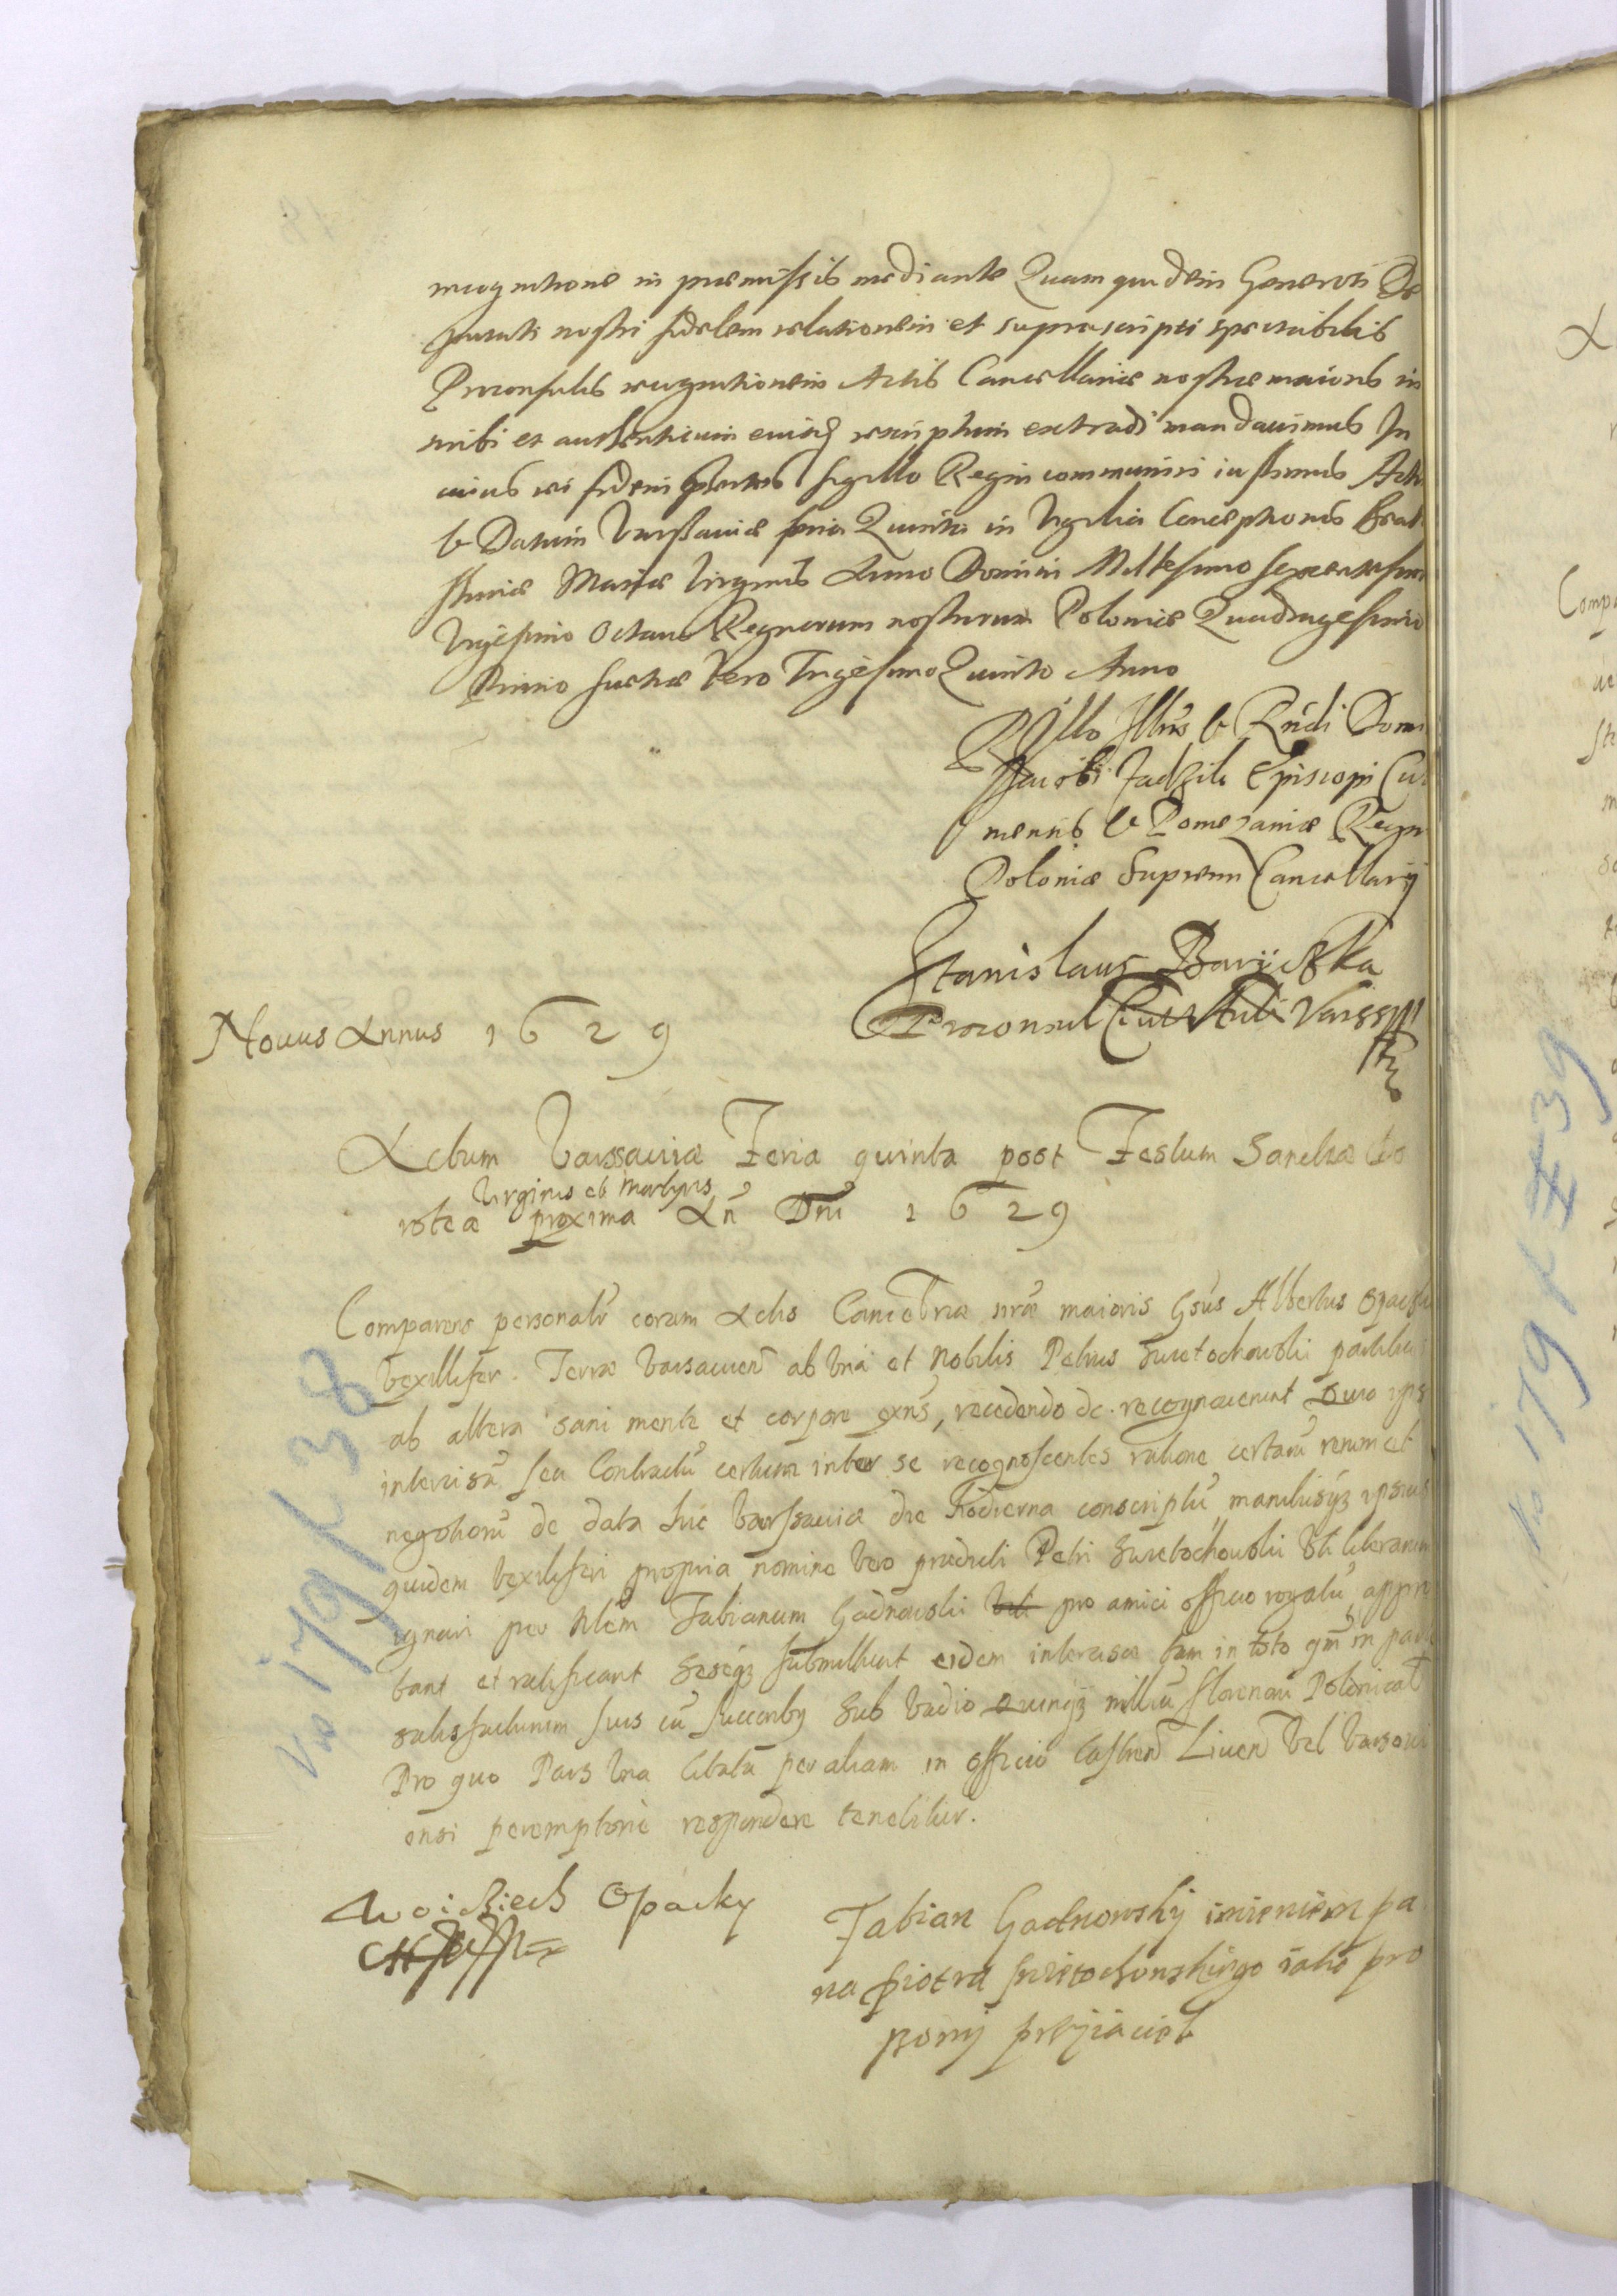 recognitione in praemissis mediante Quam quidem Generosi De
putati nostri fidelem relationem et suprascripti spectabilis
Proconsulis recognitionem Actis Cancellariae nostrae maioris in
scribi et authenticum eiusq rescriptum extradi mandauimus In
cuius rei fidem pntes sigillo Regni communiri iussimus Act
& Datum Varssauiae feria Quinta in Vigilia Conceptionis Beat
ssimae Mariae Virginis Anno Domini Millesimo sexcentesimo
Vigesimo Octauo Regnorum nostrorum Poloniae Quadragesimo
Primo Suetiae Vero Trigesimo Quinto Anno
Rllo Illris & Rndi Dom
Jacobi Zadzik Episcopi Cul
mensis & Pomezaniae Regn
Poloniae Supremi Cancellarij
Stanislaus Barÿczka
Proconsul Varss
Nouus Annus 1629
Actum Varssauiae Feria quinta post Festum Sanctae Do
Virginis et Martyris
roteae proxima An Dni 1629
Comparens personalr coram Actis Cancellriae nrae maioris Gsus Albertus Opacki
Vexillifer Terrae Varsauien ab Vna et Nobilis Petrus Swietochowski partibus
ab altera sani mente et corpore exns, recedendo de recognouerunt Quia ips
intercisa seu Contractu certum inter se recognoscentes ratione certaru rerum et
negotioru de data hic Varssauiae die hodierna conscriptu manibusqz ipsius
quidem Vexilliferi propria nomine Vero praedicti Petri Swietochowski Vti literarum
ignari per Nlem Fabianum Gadnowski pro amici officio rogatu appro
bant et ratificant seseqz submittunt eidem intercisae tam in toto qm in parte
satisfacturum suis cu succenbq sub Vadio Quinqz milliu florenoru Polonical
Pro quo Pars Vna Citata per aliam in officio Castren Liuen Vel Varsoui
ensi peremptorie respondere tenebitur.
Woiciech Opacky
Fabian Gadnowskÿ imieniem pa
na piotra swietochowskiego iako pro
szonÿ przÿiaciel
Vio 179 k 38
Vio 179 k 39